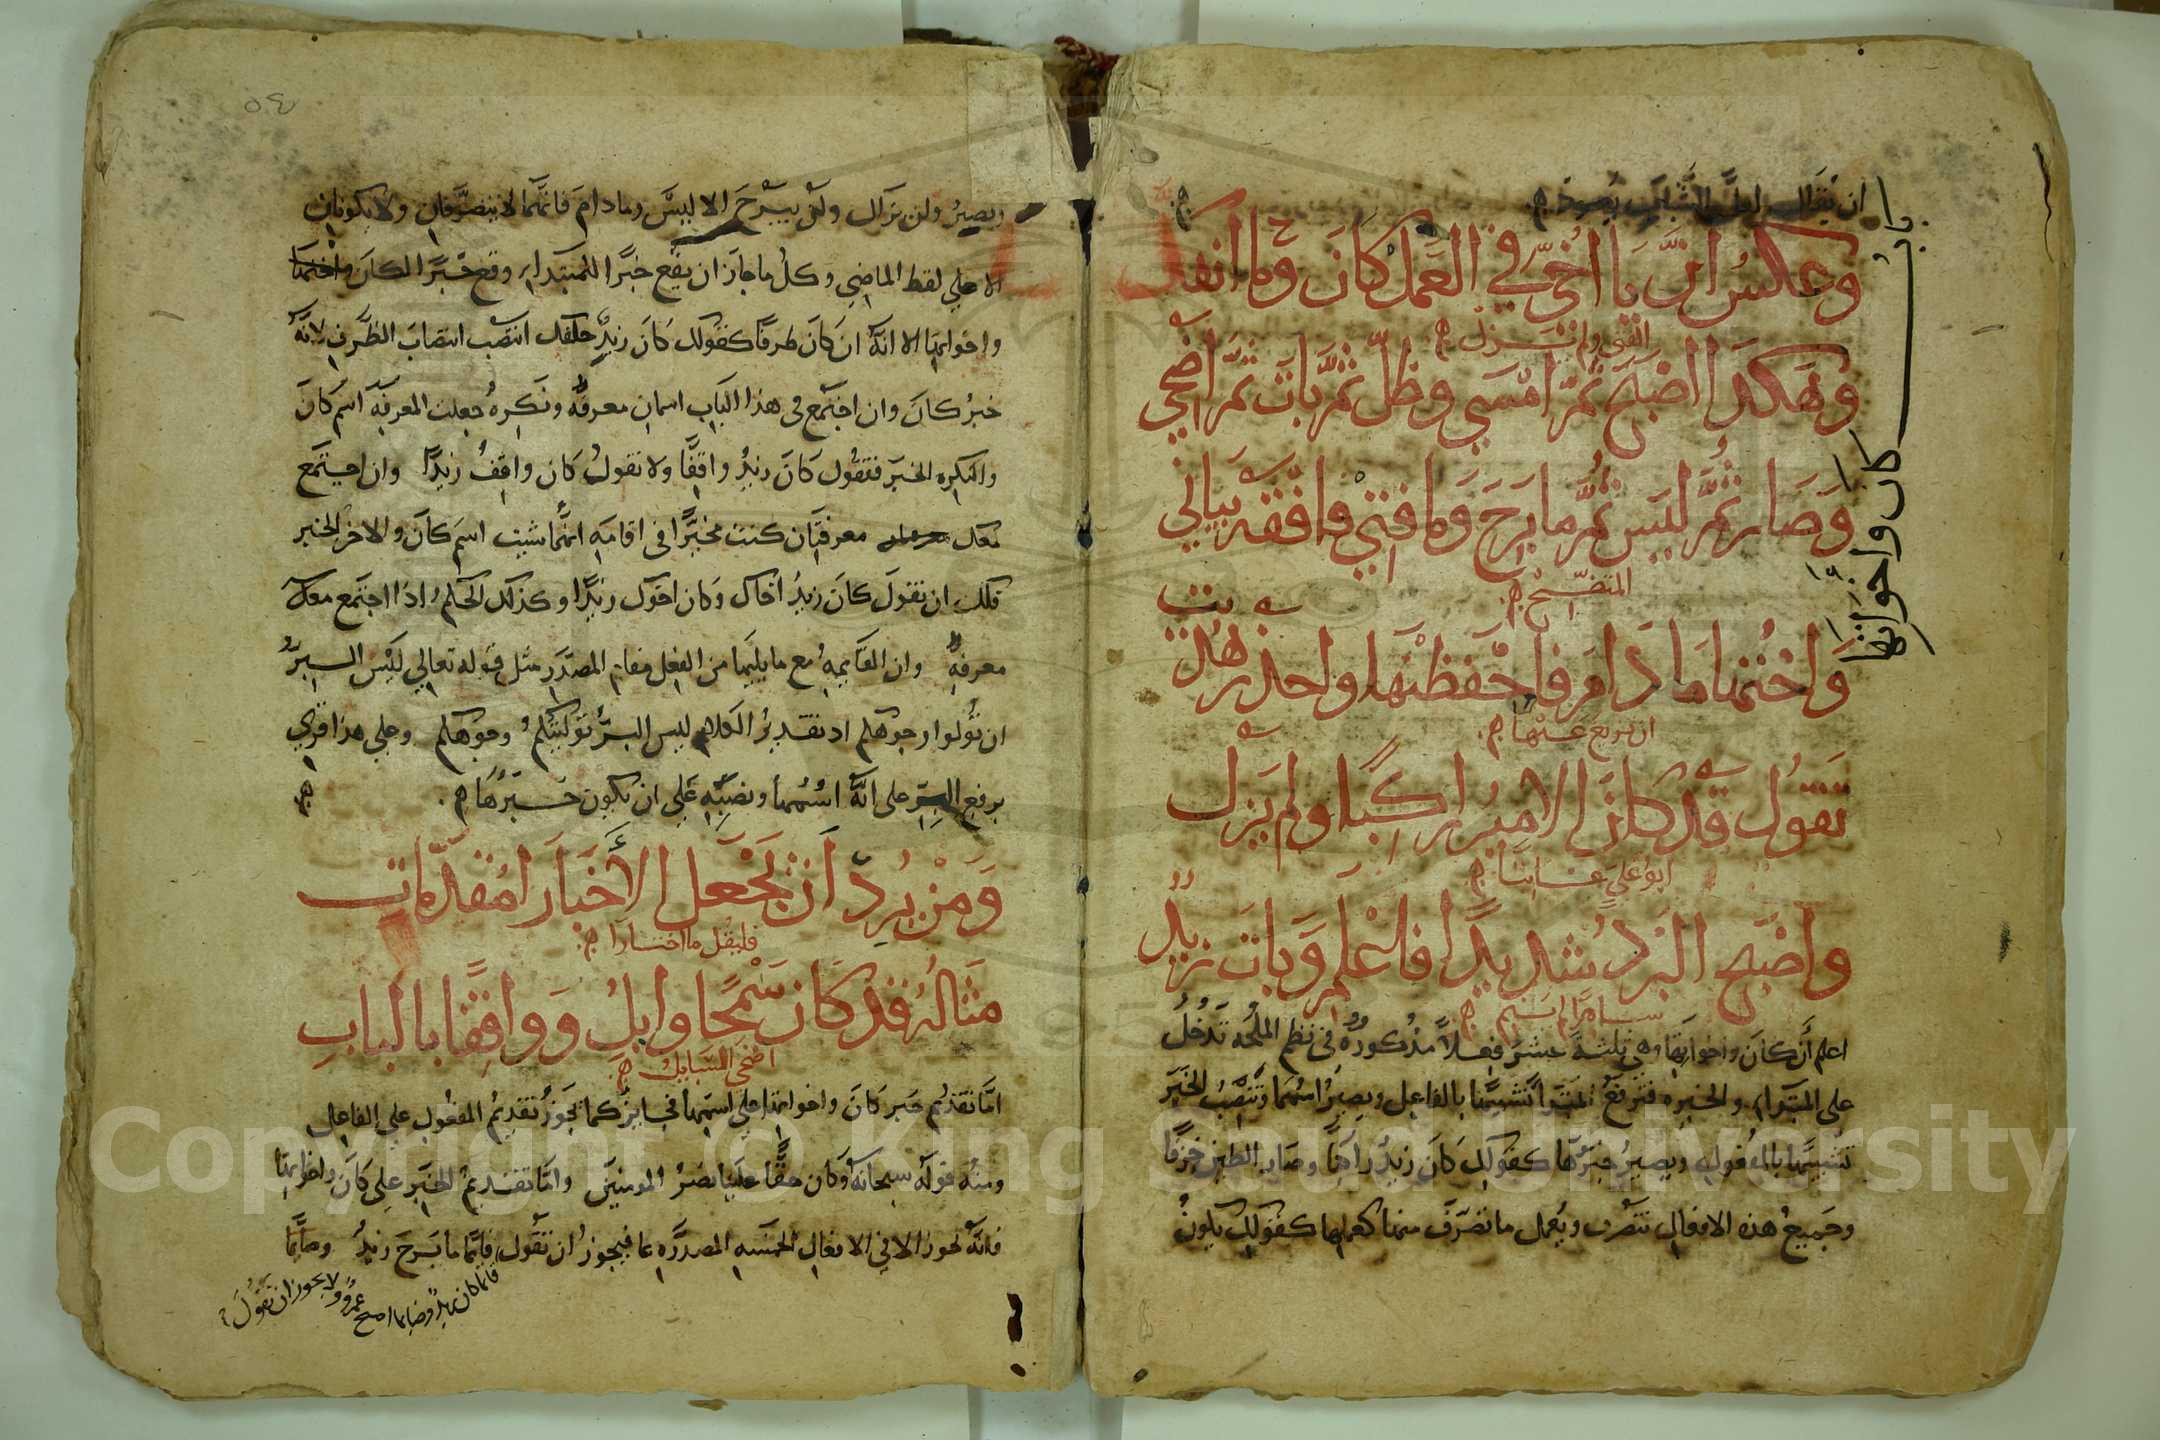 ان يقال ان
باب كان واخواتها
وعكس ان يا اخي في العمل كان وما انفك
الفتى ولم يزل
وهكذا اصبح ثم امسى وظل ثم بات ثم اضحى
وصار ثم ليس ثم ما برح وما فتئ فافقه بياني
المتضح
واختها ما دام فاحفظنها واحذر هديت
ان تزيغ عنها
تقول قد كان الامير راكبا ولم يزل
ابو علي عاتبا
واصبح البرد شديدا فاعلم وبات زيد
ساهرا لم ينم
اعلم أن كان واخواتها وهي ثلثة عشر فعلا مذكورة في نظم الملحة تدخل
على المبتدا والخبر فترفع المبتدا تشبيها بالفاعل ويصير اسمها وتنصب الخبر
تشبيها بالمفعول ويصير خبرها كقولك كان زيد راكبا وصار الطين خزفا
وجميع هذه الافعال تتصرف ويعمل ما تصرف منها كعملها كقولك يكون
ويصير ولن يزال ولن يبرح الا ليس وما دام فانهما لا يتصرفان ولا يكونان
الا على لفظ الماضي وكل ما جاز ان يقع خبرا للمبتداء وقع خبرا لكان
واخواتها الا انه ان كان ظرفا كقولك كان زيد خلفك انتصب انتصاب الظرف لانه
خبر كان وان اجتمع في هذا الباب اسمان معرفة ونكره جعلت المعرفه اسم كان
والنكره الخبر فتقول كان زيد واقفا ولا تقول كان واقف زيدا وان اجتمع
معك معرفتان كنت مخيرا في اقامه ايهما شيت اسم كان والاخر الخبر
فلك ان تقول كان زيد اخاك وكان اخوك زيدا وكذلك الحكم اذا اجتمع معك
معرفة وان القايمه مع ما يليها من الفعل مقام المصدر مثل قوله تعالى ليس البر
ان تولوا وجوهكم اذ تقدير الكلام ليس البر توليتكم وجوهكم وعلى هذا قري
برفع البر على انه اسمها ونصبه على ان يكون خبرها
ومن يرد ان يجعل الأخبار مقدمات
فليقل ما اختارا
مثاله قد كان سمحا وايل وواقفا بالباب
اضحى السايل
اما تقديم خبر كان واخواتها على اسمها فجايز كما يجوز تقديم المفعول على الفاعل
ومنه قوله سبحانه وكان حقا علينا نصر المومنين واما تقديم الخبر على كان واخواتها
فانه يجوز الا في الافعال الخمسه المصدره بما فيجوز ان تقول قايما ما برح زيد وصايما
عمرو ولا يجوز ان تقول